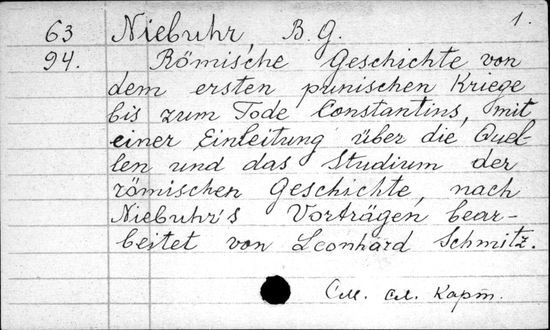 1.
63 Niebuhr B. G.
94. Römische Geschichte von
dem ersten punischen Kriege
bis zum Tode Constantins, mit
einer Einleitung über die Quel-
len und das Studium der
römischen Geschichte, nach
Niebuhr's Vorträgen bear-
beitet von Leonhard Schmitz.
См. сл. карт.